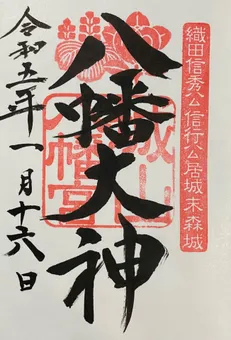 織田信秀公信行公居城末森城
八幡大神
城山
八幡宮
令和五年一月十六日